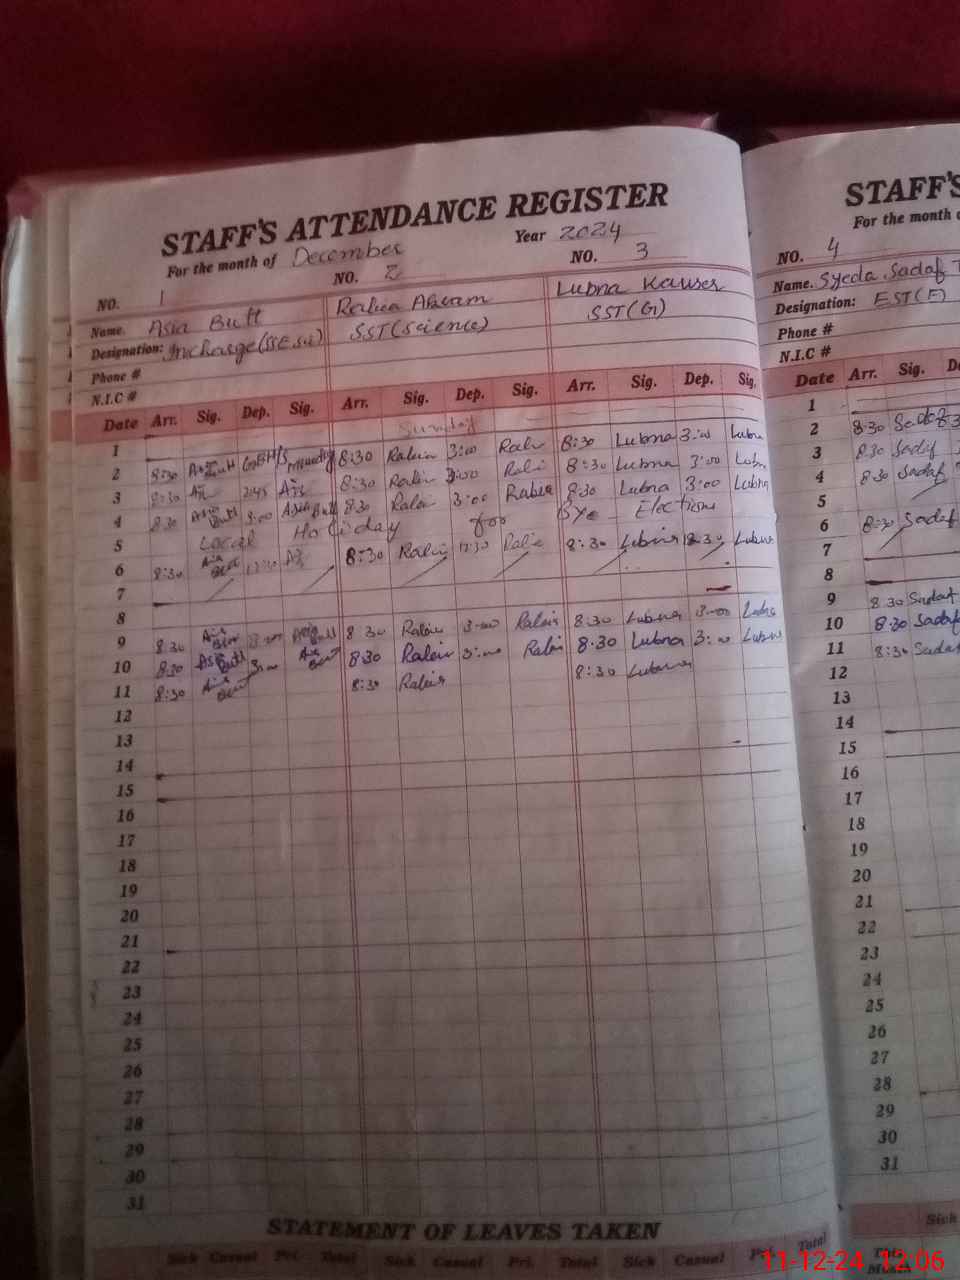 STAFF'S ATTENDANCE REGISTER
For the month of December Year 2024
NO. 1 NO. 2 NO. 3
Name. Asia Butt Rabia Akram Lubna Kauser
Designation: Incharge(SSE.Sci) SST(Science) SST(G)
Phone #
N.I.C #
Date Arr. Sig. Dep. Sig. Arr. Sig. Dep. Sig. Arr. Sig. Dep. Sig.
1 Sunday
2 8:30 Asia Butt 8:30 Rabia 3:00 Rabi 8:30 Lubna 3:00 Lubna
3 8:30 2:45 8:30 Rabia 3:00 Rabi 8:30 Lubna 3:00 Lubna
4 8:30 Asia Butt 3:00 Asia Butt 8:30 Rabia 3:00 Rabia 8:30 Lubna 3:00 Lubna
5 Local Holiday for Bye Elections
6 8:30 Asia Butt 12:30 8:30 Rabia 12:30 Rabia 8:30 Lubna 12:30 Lubna
7
8
9 8:30 Asia Butt 3:00 Asia Butt 8:30 Rabia 3:00 Rabia 8:30 Lubna 3:00 Lubna
10 8:30 Asia Butt 3:00 Asia Butt 8:30 Rabia 3:00 Rabia 8:30 Lubna 3:00 Lubna
11 8:30 Asia Butt 8:30 Rabia 8:30 Lubna
12
13
14
15
16
17
18
19
20
21
22
23
24
25
26
27
28
29
30
31
STATEMENT OF LEAVES TAKEN
Sick Casual Pri. Total Sick Casual Pri. Total Sick Casual Pri. Total
STAFF'S
For the month of
NO. 4
Name. Syeda Sadaf
Designation: EST(F)
Phone #
N.I.C #
Date Arr. Sig.
1
2 8:30 Sadaf
3 8:30 Sadaf
4 8:30 Sadaf
5
6 8:30 Sadaf
7
8
9 8:30 Sadaf
10 8:30 Sadaf
11 8:30 Sadaf
12
13
14
15
16
17
18
19
20
21
22
23
24
25
26
27
28
29
30
31
Sick
11-12-24 12:06